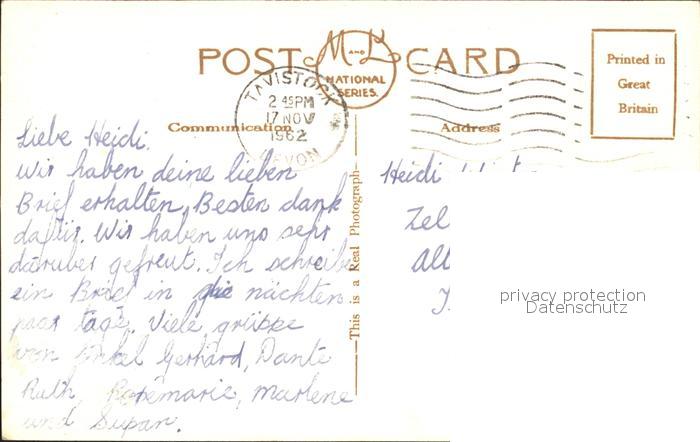 POST M AND L CARD
NATIONAL
SERIES.
Printed in
Great
Britain
TAVISTOCK
2 45 PM
17 NOV
1962
DEVON
Communication
Address
This is a Real Photograph
Liebe Heidi.
Wir haben deine lieben
Brief erhalten, Besten dank
dafür. Wir haben uns sehr
darüber gefreut. Ich schreibe
ein Brief in die nächten
paar tage. Viele grüppe
von Onkel Gerhard, Dante
Ruth, Rosemarie, Marlene
und Susan.
Heidi
Zel
All
privacy protection
Datenschutz